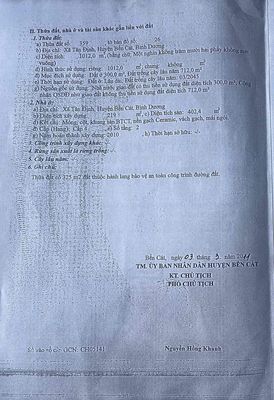 II. Thửa đất, nhà ở và tài sản khác gắn liền với đất
1. Thửa đất:
a) Thửa đất số: 359 , tờ bản đồ số: 26
b) Địa chỉ: Xã Tân Định, Huyện Bến Cát, Bình Dương
c) Diện tích: 1012,0 m², (bằng chữ: Một nghìn không trăm mười hai phẩy không mét vuông)
d) Hình thức sử dụng: riêng: 1012,0 m²; chung: không m²
đ) Mục đích sử dụng: Đất ở 300,0 m², Đất trồng cây lâu năm 712,0 m²
e) Thời hạn sử dụng: Đất ở: Lâu dài; Đất trồng cây lâu năm:
g) Nguồn gốc sử dụng: Nhà nước giao đất có thu tiền sử dụng đất diện tích 300,0 m²; Công
nhận QSDĐ như giao đất không thu tiền sử dụng đất diện tích 712,0 m²
2. Nhà ở:
a) Địa chỉ: Xã Tân Định, Huyện Bến Cát, Bình Dương
b) Diện tích xây dựng: 219 m², c) Diện tích sàn: 402,4 m²
d) Kết cấu: Móng, cột, khung sàn BTCT, nền gạch Ceramic, vách gạch, mái ngói.
đ) Cấp (Hạng): Cấp 4 , e) Số tầng: 2
g) Năm hoàn thành xây dựng: 2010 , h) Thời hạn sở hữu: -/-
3. Công trình xây dựng khác: -/-
4. Rừng sản xuất là rừng trồng: -/-
5. Cây lâu năm: -/-
6. Ghi chú:
Thửa đất có 325 m² đất thuộc hành lang bảo vệ an toàn công trình đường đất.
Bến Cát, ngày 03 tháng 3 năm 2011
TM. ỦY BAN NHÂN DÂN HUYỆN BẾN CÁT
KT. CHỦ TỊCH
PHÓ CHỦ TỊCH
Số vào sổ cấp GCN: CH05141
Nguyễn Hồng Khanh